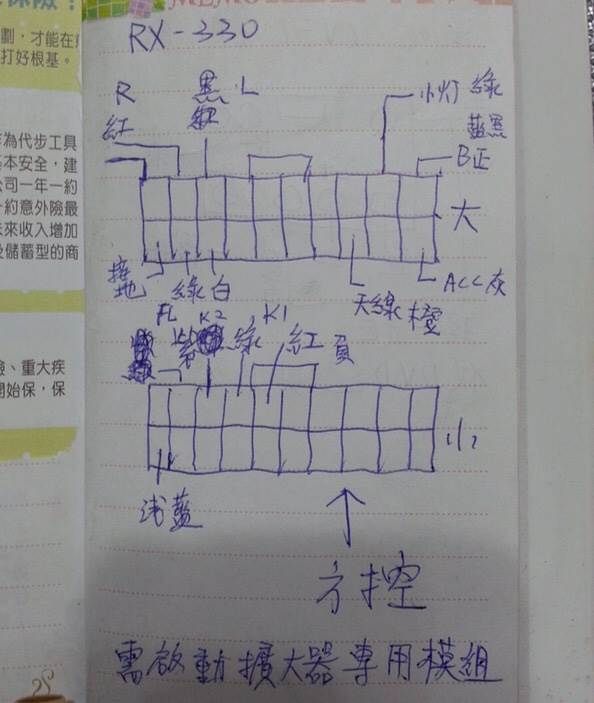 MEMO
保險？
劃，才能在
打好根基。
為代步工具
基本安全，建
公司一年一約
一約意外險最
未來收入增加
及儲蓄型的商
險、重大疾
開始保，保
RX-330
R
紅
黑 L
小灯 綠
藍黑
B正
大
接地
綠白
天線 橙
ACC灰
FL
紫
K2
綠
K1
紅
負
小
浅藍
方控
需啟動擴大器專用模組